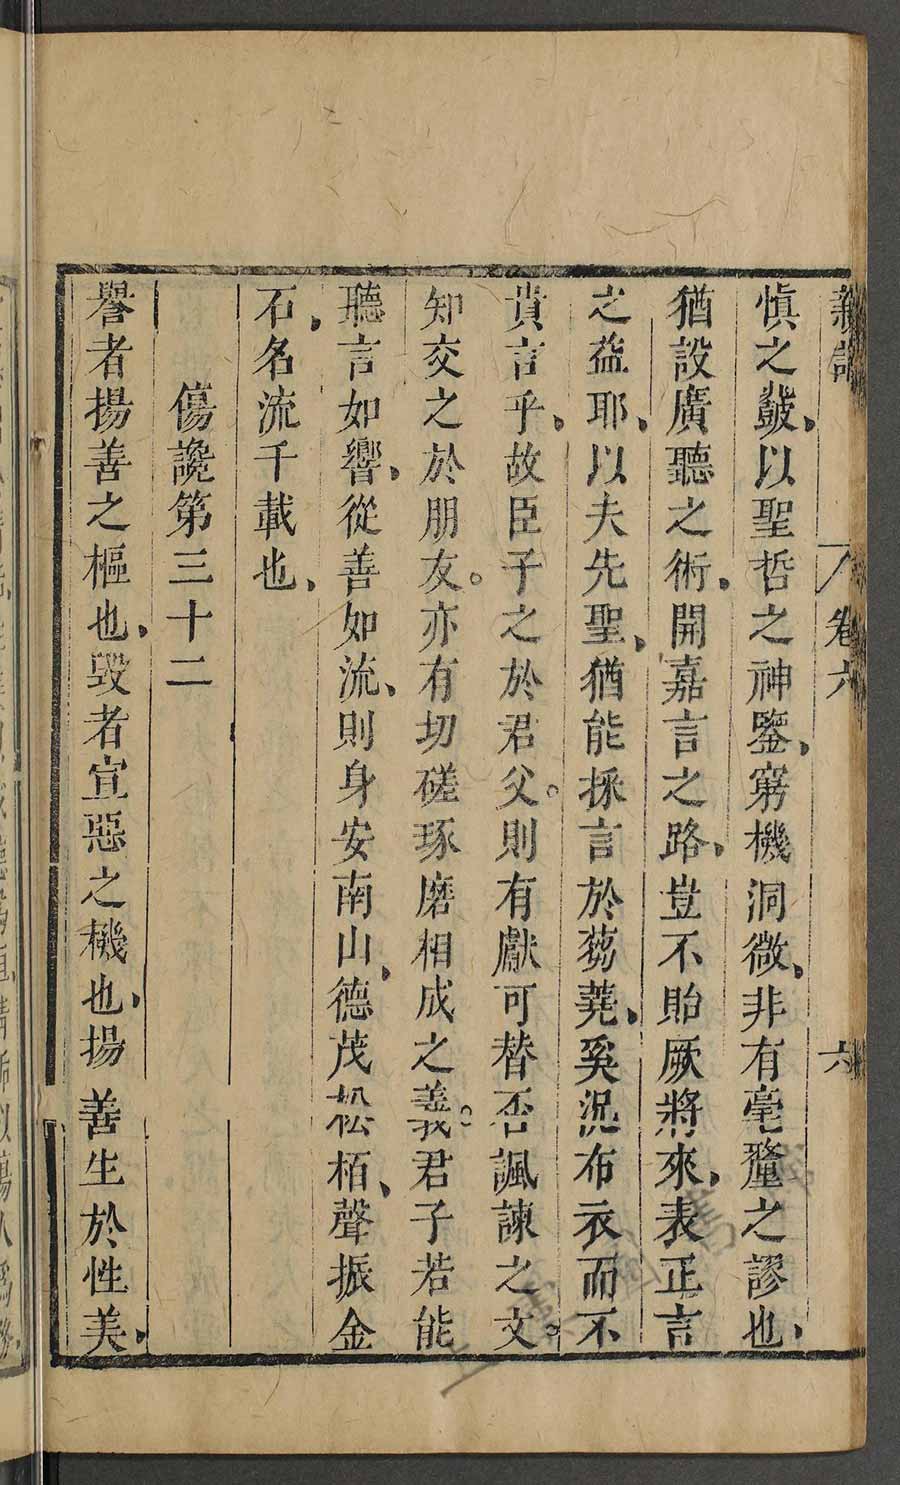 新論 卷六 六
慎之鼗、以聖哲之神鑒、窮機洞微、非有毫釐之謬也、
猶設廣聽之術、開嘉言之路、豈不貽厥將來、表正言
之益耶、以夫先聖、猶能採言於蒭蕘、奚況布衣而不
貴言乎、故臣子之於君父。則有獻可替否諷諫之文。
知交之於朋友。亦有切磋琢磨相成之義。君子若能
聽言如響、從善如流、則身安南山、德茂松栢、聲振金
石、名流千載也、
傷讒第三十二
譽者揚善之樞也、毀者宣惡之機也、揚善生於性美、